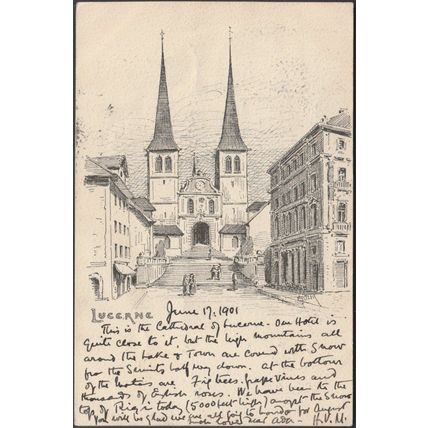 LUCERNE
June 17. 1901
This is the Cathedral of Lucerne - Our Hotel is
quite close to it, but the high mountains all
around the Lake & Town are covered with Snow
for the Summits half way down. at the bottom
of the are Fig trees. grape Vines and
thousands of roses. We have been to the
top of Rigi today (5000 feet high) amongst the Snow
You will be glad we are all going to London for August
with love dear Ada - H.V.M.